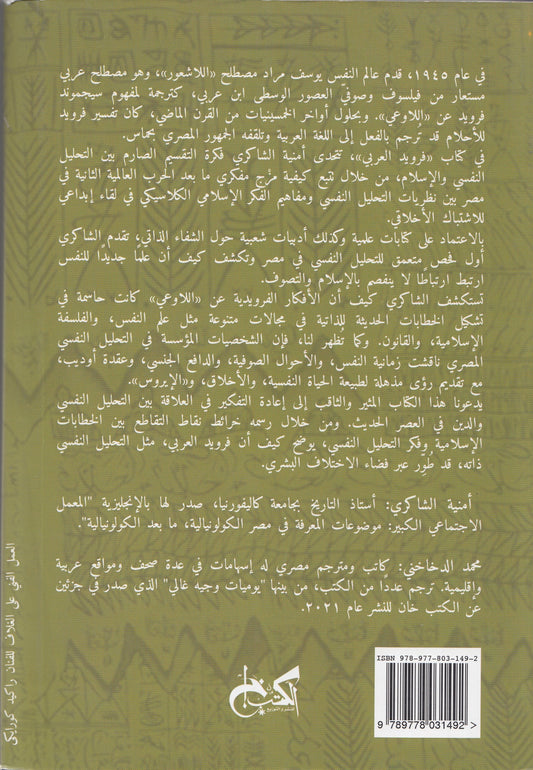 في عام ١٩٤٥، قدم عالم النفس يوسف مراد مصطلح «اللاشعور»، وهو مصطلح عربي
مستعار من فيلسوف وصوفيّ العصور الوسطى ابن عربي، كترجمة لمفهوم سيجموند
فرويد عن «اللاوعي». وبحلول أواخر الخمسينيات من القرن الماضي، كان تفسير فرويد
للأحلام قد ترجم بالفعل إلى اللغة العربية وتلقفه الجمهور المصري بحماس.
في كتاب «فرويد العربي»، تتحدى أمنية الشاكري فكرة التقسيم الصارم بين التحليل
النفسي والإسلام، من خلال تتبع كيفية مزج مفكري ما بعد الحرب العالمية الثانية في
مصر بين نظريات التحليل النفسي ومفاهيم الفكر الإسلامي الكلاسيكي في لقاء إبداعي
للاشتباك الأخلاقي.
بالاعتماد على كتابات علمية وكذلك أدبيات شعبية حول الشفاء الذاتي، تقدم الشاكري
أول فحص متعمق للتحليل النفسي في مصر وتكشف كيف أن علمًا جديدًا للنفس
ارتبط ارتباطًا لا ينفصم بالإسلام والتصوف.
تستكشف الشاكري كيف أن الأفكار الفرويدية عن «اللاوعي» كانت حاسمة في
تشكيل الخطابات الحديثة للذاتية في مجالات متنوعة مثل علم النفس، والفلسفة
الإسلامية، والقانون. وكما تُظهر لنا، فإن الشخصيات المؤسسة في التحليل النفسي
المصري ناقشت زمانية النفس، والأحوال الصوفية، والدافع الجنسي، وعقدة أوديب،
مع تقديم رؤى مذهلة لطبيعة الحياة النفسية، والأخلاق، و«الإيروس».
يدعونا هذا الكتاب المثير والثاقب إلى إعادة التفكير في العلاقة بين التحليل النفسي
والدين في العصر الحديث. ومن خلال رسمه خرائط نقاط التقاطع بين الخطابات
الإسلامية وفكر التحليل النفسي، يوضح كيف أن فرويد العربي، مثل التحليل النفسي
ذاته، قد طُوِر عبر فضاء الاختلاف البشري.
أمنية الشاكري: أستاذ التاريخ بجامعة كاليفورنيا، صدر لها بالإنجليزية "المعمل
الاجتماعي الكبير: موضوعات المعرفة في مصر الكولونيالية، ما بعد الكولونيالية".
محمد الدخاخني: كاتب ومترجم مصري له إسهامات في عدة صحف ومواقع عربية
وإقليمية. ترجم عددًا من الكتب، من بينها "يوميات وجيه غالي" الذي صدر في جزئين
عن الكتب خان للنشر عام ٢٠٢١.
العمل الفني على الغلاف للفنان راكيد كورايكي
الكتب خان
للنشر والتوزيع
ISBN 978-977-803-149-2
9 789778 031492 >